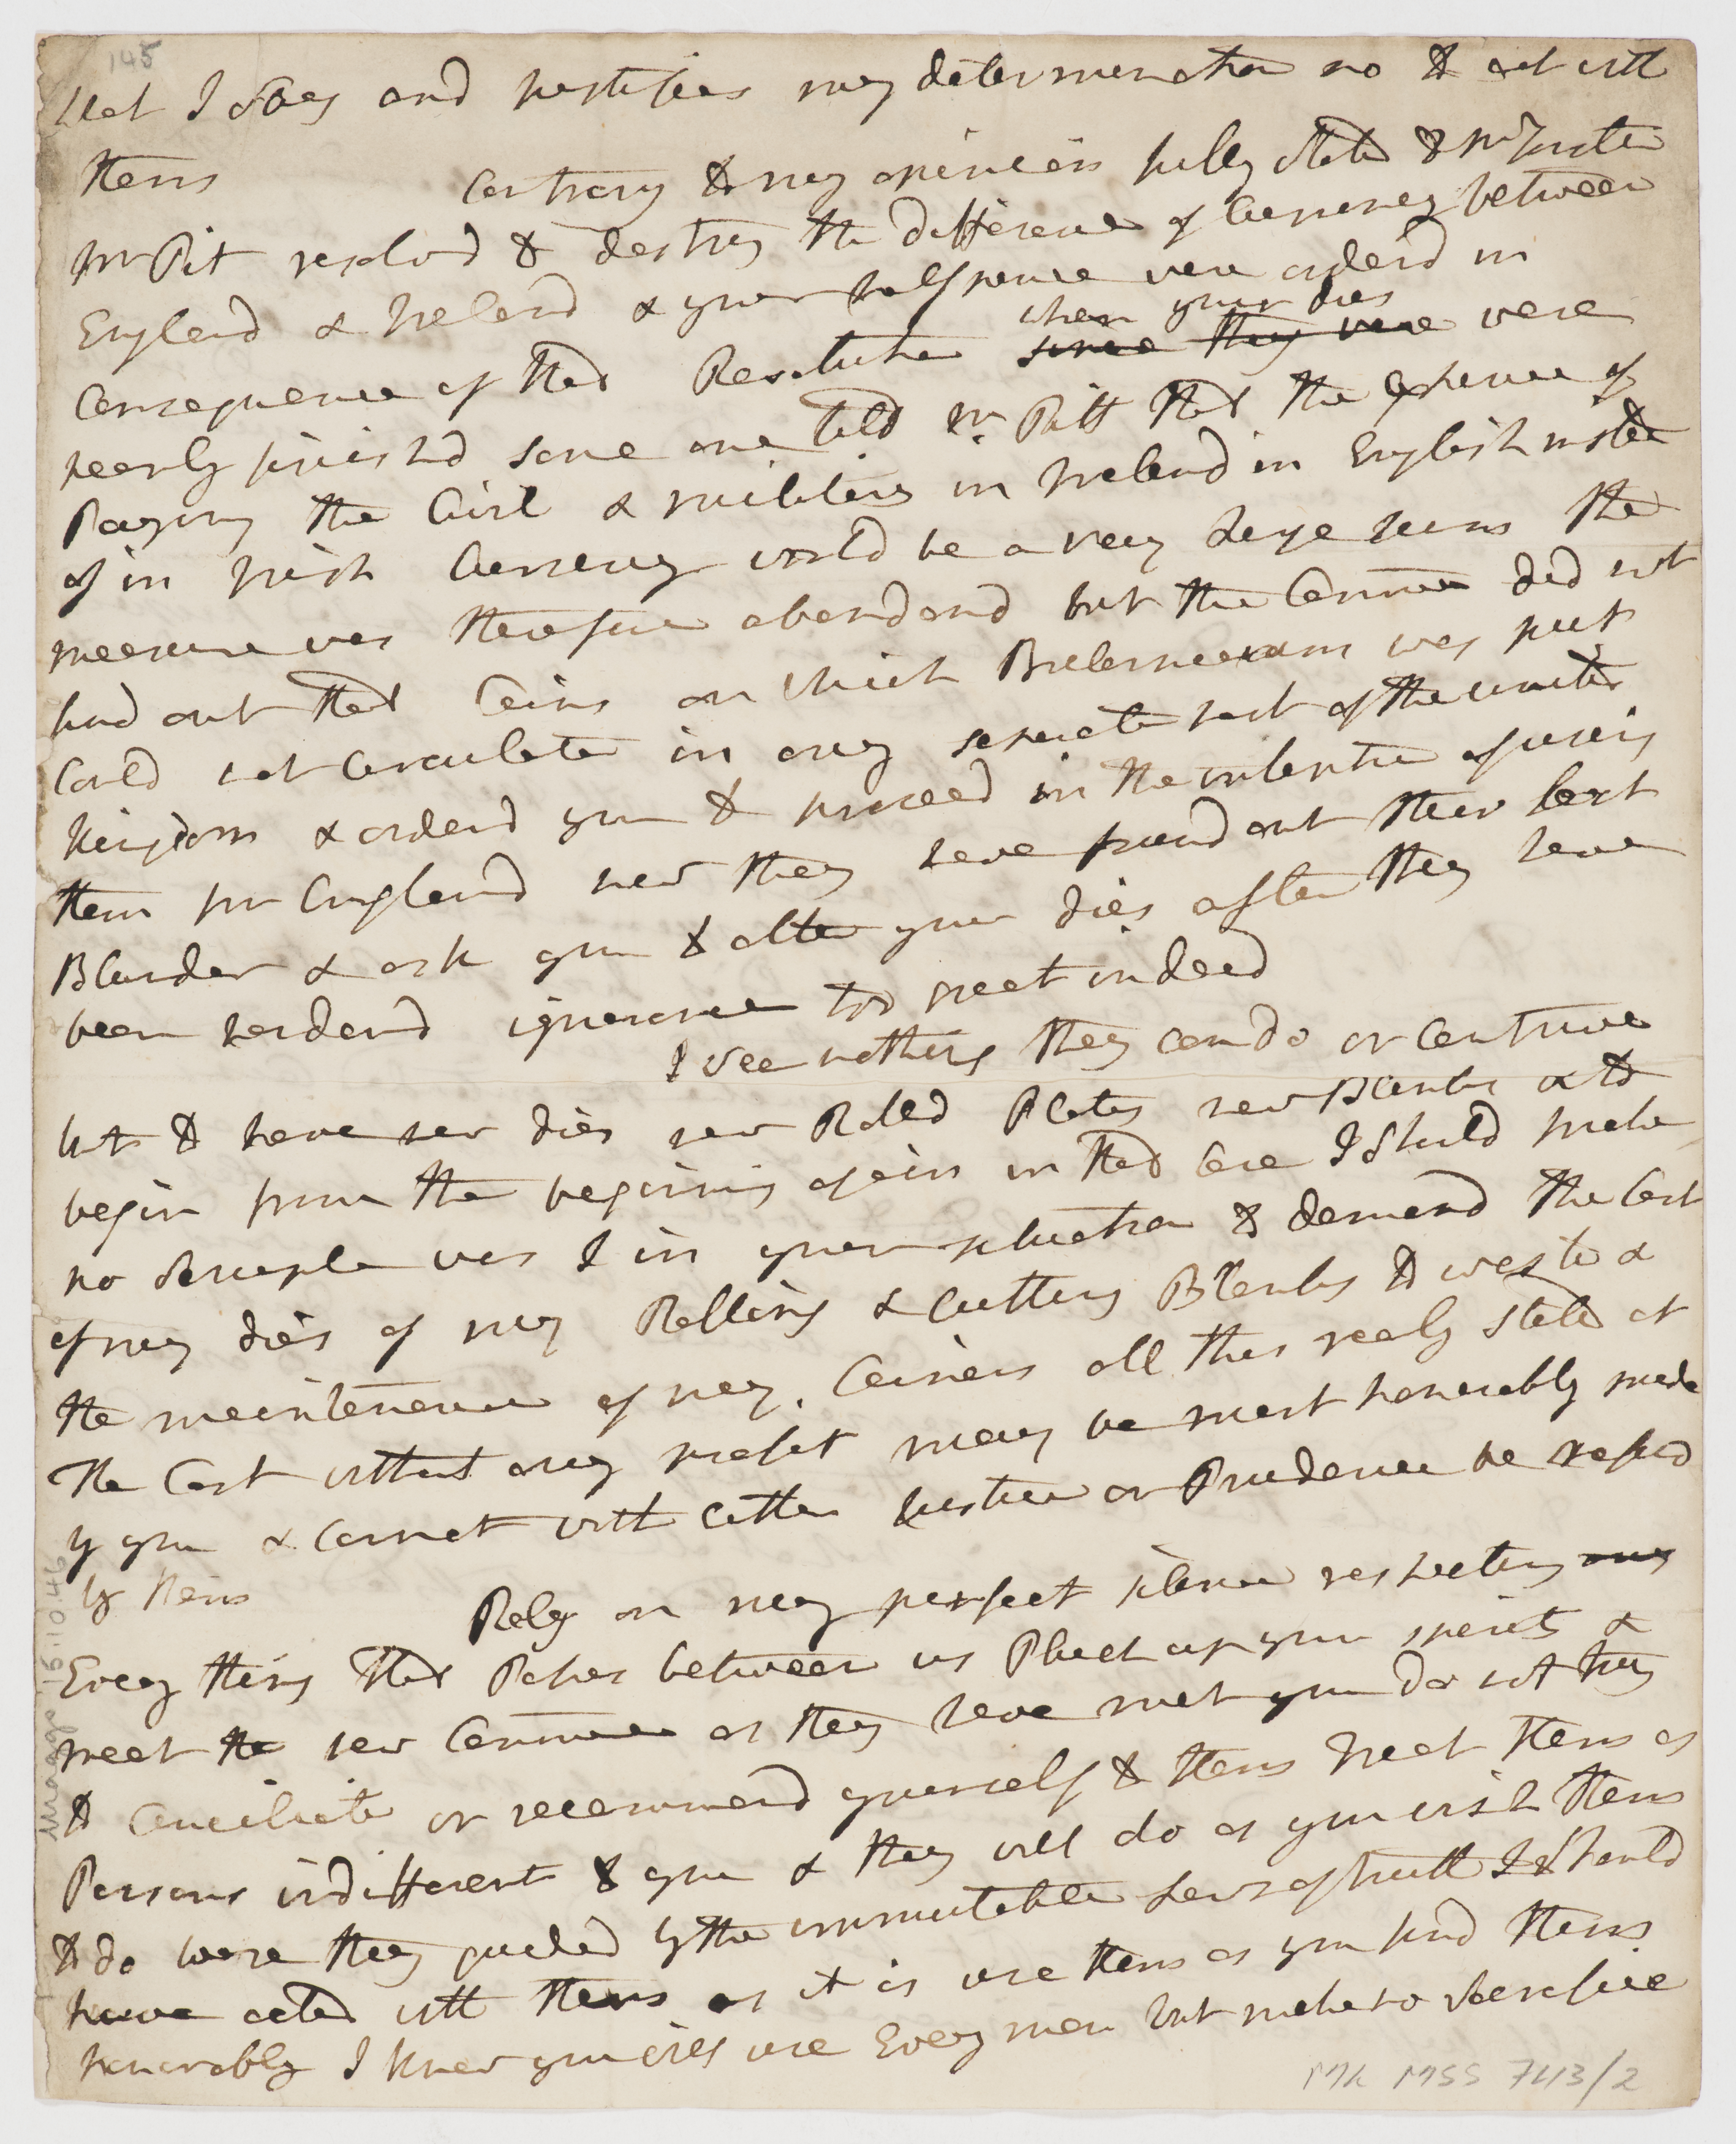 145
that I Say and justifies my determination no to act with
them Contrary to my opinion fully stated to Mr Forster
Mr Pit resolvd to destroy the difference of Currency between
England & Ireland & your halfpence were orderd in
when your dies
Consequence of that Resolution since they were were
nearly finishd some one told Mr. Pitt that the expence of
Paying the Civil & military in Ireland in English instead
of in Irish Currency would be a very large sum the
measure was therefore abandond but the Comme did not
find out that Coins on which Brelanniarum was put
Could not Circulate in any separate part of the united
Kingdom & orderd you to proceed in the intention of using
them for England now they have found out their last
Blunder & ask you to alter your dies after they have
been hardend ignorance too great indeed
I see nothing they can do or Contrive
but to have new dies new Rolled Plates new Blanks & to
begin from the begining again in that Case I Should make
no Scruple was I in your situation to demand the Cost
of my dies of my Rolling & Cutting Blanks to waste &
the maintenance of my Coiners all this realy stated at
The Cost without any profit may be most honorably made
by you & Cannot with either Justice or Prudence be refusd
by them
Rely on my perfect silence respecting any
Every thing that Passes between us Pluck up your spirits &
meet the new Comme as they have met you do not try
to Conciliate or recommend yourself to them treat them as
Persons indifferent to you & they will do as you wish them
to do were they guided by the immutable Laws of truth I Should
have acted with them as it is use them as you find them
honorably I know you will use Every man but make no Sacrifice
Maggs 15.10.46
ML MSS 7413/2